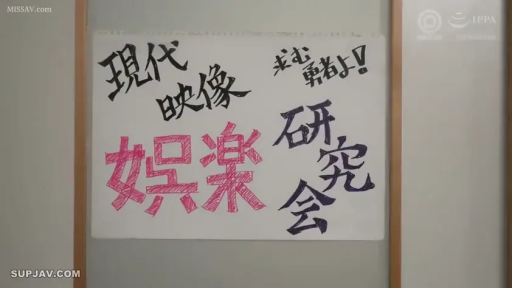 MISSAV.COM
IPPA
現代
映像
娯楽
研究会
求む
勇者よ!
SUPJAV.COM